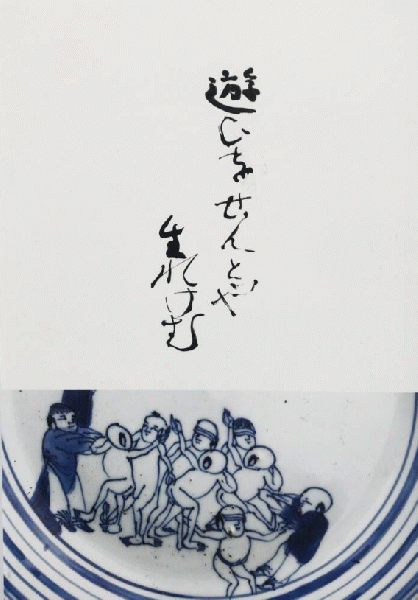 遊びをせんとや
生れけむ